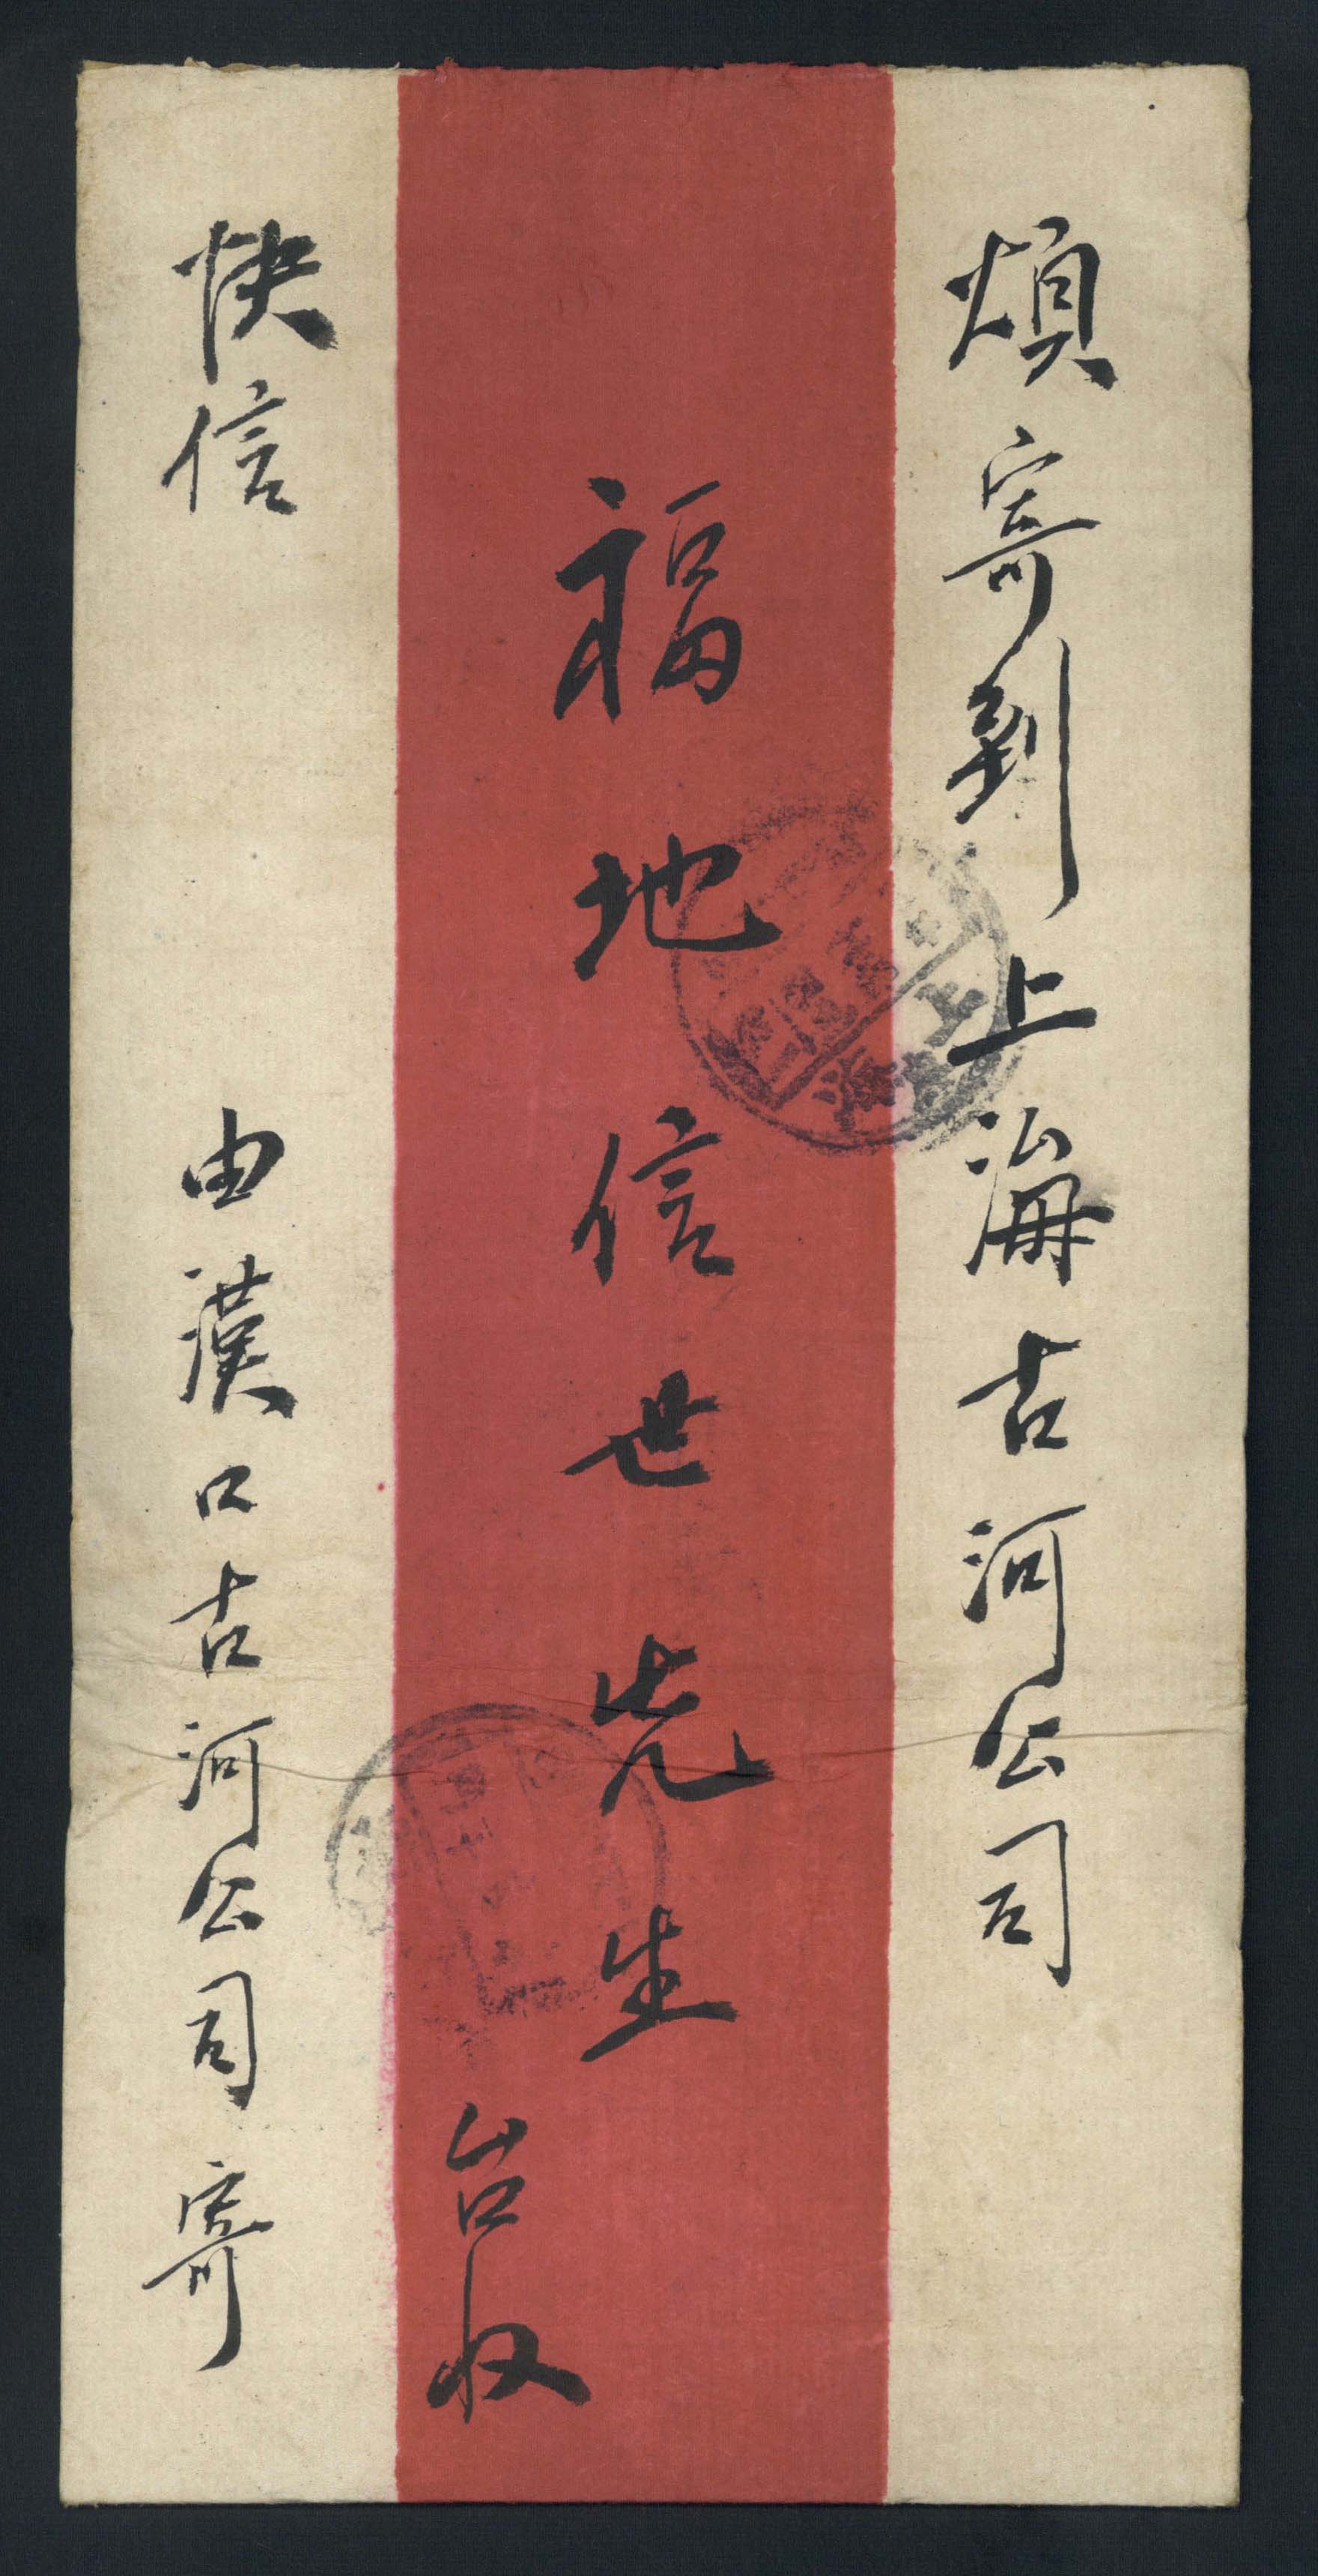 煩寄到上海古河公司
福地信世先生
台收
快信
由漢口古河公司寄